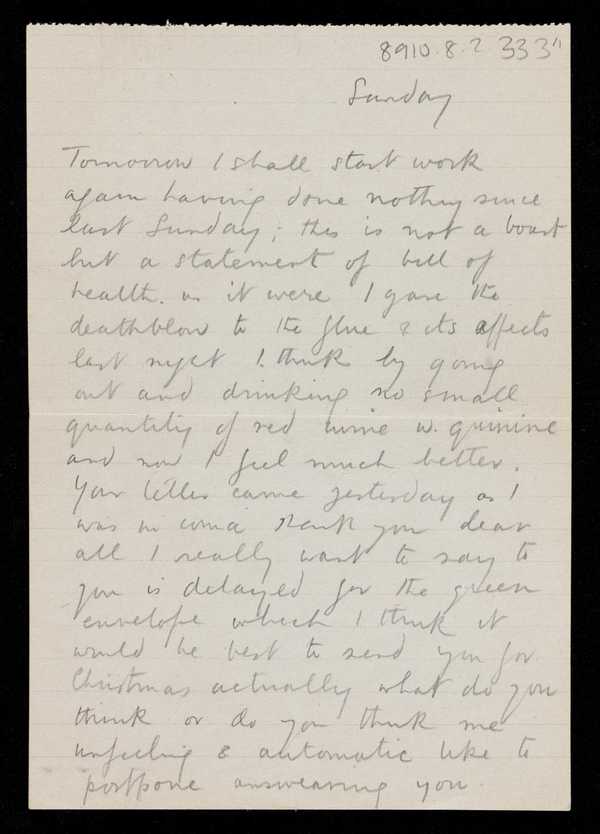 8910.8.2 333
Sunday
Tomorrow I shall start work
again having done nothing since
last Sunday; this is not a boast
but a statement of bill of
health. as it were I gave the
deathblow to the flue & its affects
last night I. think by going
out and drinking no small
quantity of red wine w. quinine
and now I feel much better.
Your letter came yesterday as I
was in coma thank you dear
all I really want to say to
you is delayed for the green
envelope which I think it
would be best to send you for
Christmas actually what do you
think or do you think me
unfeeling & automatic like to
postpone answearing you.